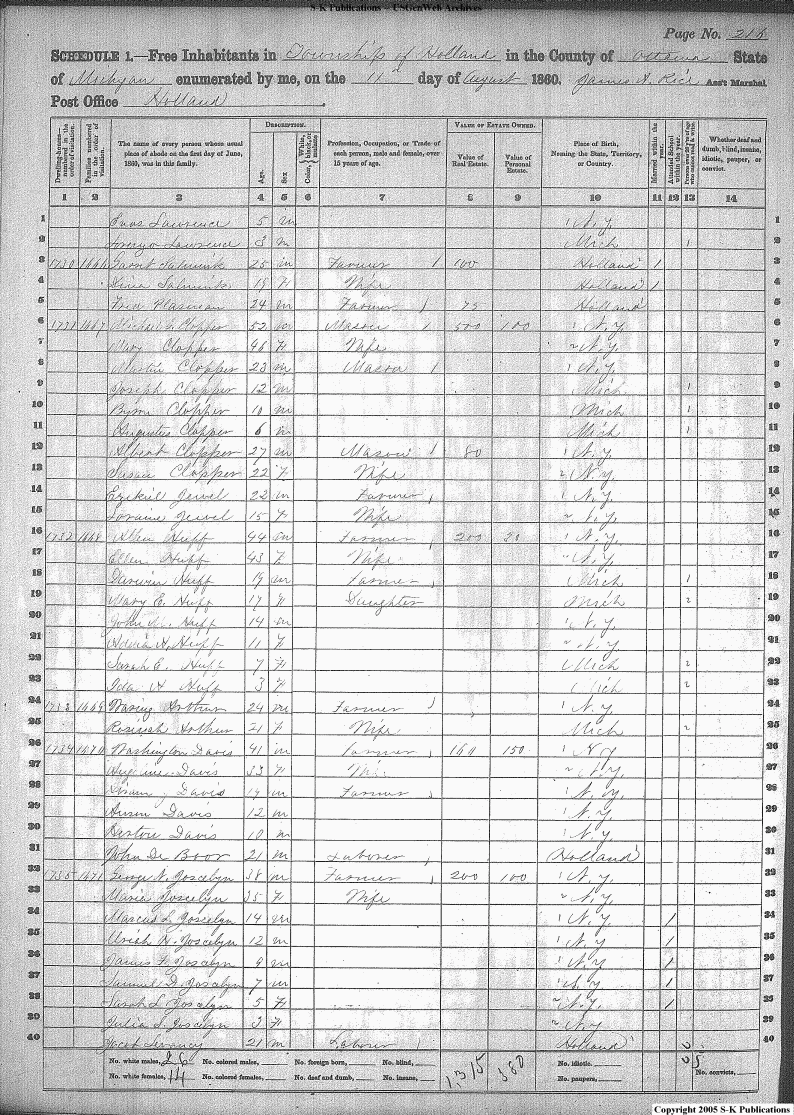 S-K Publications – USGenWeb Archives
Page No. 216
SCHEDULE 1.—Free Inhabitants in Township of Holland in the County of Ottawa State
of Michigan enumerated by me, on the 11th day of August 1860. James A. Rice Ass't Marshal.
Post Office Holland
DESCRIPTION. VALUE OF ESTATE OWNED.
Dwelling-houses—numbered in the order of visitation. Families numbered in the order of visitation. The name of every person whose usual place of abode on the first day of June, 1860, was in this family. Age. Sex Color, White, black, or mulatto Profession, Occupation, or Trade of each person, male and female, over 15 years of age. Value of Real Estate. Value of Personal Estate. Place of Birth, Naming the State, Territory, or Country. Married within the year. Attended School within the year. Persons over 20 y'rs of age who cannot read & write. Whether deaf and dumb, blind, insane, idiotic, pauper, or convict.
1 2 3 4 5 6 7 8 9 10 11 12 13 14
1 Lawrence 5 m N.Y. 1
2 Lawrence 3 m Mich 1 2
3 1730 1666 25 m Farmer 1 100 Holland 1 3
4 19 F Wife Holland 1 4
5 24 m Farmer 1 75 Holland 5
6 1731 1667 Michael Clopper 52 m Mason 1 500 100 N.Y. 6
7 Mary Clopper 46 F Wife N.Y. 7
8 Martin Clopper 23 m Mason 1 N.Y. 8
9 Joseph Clopper 12 m Mich 1 9
10 Byron Clopper 10 m Mich 1 10
11 Augustus Clopper 6 m Mich 1 11
12 Albert Clopper 27 m Mason 1 80 N.Y. 12
13 Susan Clopper 22 F Wife N.Y. 13
14 Ezekiel Jewel 22 m Farmer 1 N.Y. 14
15 Loraine Jewel 15 F Wife N.Y. 15
16 1732 1668 Allen Huff 44 m Farmer 1 200 N.Y. 16
17 Ellen Huff 43 F Wife N.Y. 17
18 Darwin Huff 19 m Farmer 1 Mich 1 18
19 Mary E. Huff 17 F Daughter Mich 2 19
20 John Huff 14 m N.Y. 20
21 Huff 11 F N.Y. 21
22 Sarah E. Huff 7 F Mich 2 22
23 Ida Huff 3 F Mich 2 23
24 1733 1669 Arthur 24 m Farmer 1 N.Y. 24
25 Arthur 21 F Wife Mich 2 25
26 1734 1670 Washington Davis 41 m Farmer 1 160 150 N.Y. 26
27 Davis 33 F N.Y. 27
28 Davis 19 m Farmer 1 N.Y. 28
29 Davis 12 m N.Y. 29
30 Davis 10 m N.Y. 30
31 John De Boor 21 m Laborer 1 Holland 31
32 1735 1671 George N. Joscelyn 38 m Farmer 1 200 100 N.Y. 32
33 Maria Joscelyn 35 F Wife N.Y. 33
34 Marcus L. Joscelyn 14 m N.Y. 1 34
35 Uriah H. Joscelyn 12 m N.Y. 1 35
36 James F. Joscelyn 9 m N.Y. 1 36
37 Samuel D. Joscelyn 7 m N.Y. 1 37
38 Sarah L. Joscelyn 5 F N.Y. 1 38
39 Julia S. Joscelyn 3 F N.Y. 39
40 Jacob 21 m Laborer 1 Holland 40
No. white males, 26 No. colored males, No. foreign born, No. blind, 1315 380 No. idiotic, No. convicts,
No. white females, 14 No. colored females, No. deaf and dumb, No. insane, No. paupers,
Copyright 2005 S-K Publications